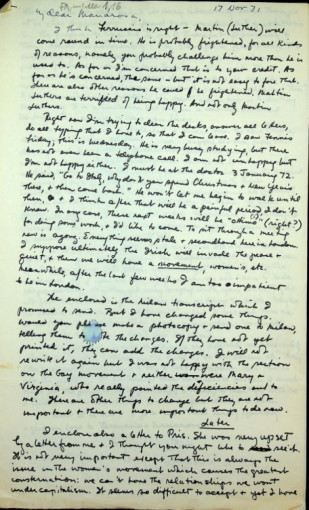 17 Nov 71
My dear Mariarosa,
I think Ferruccio is right - Martin (Luther) will
come round in time. He is probably frightened, for all kinds
of reasons, namely you probably challenge him more than he is
used to. As far as I'm concerned that is to your credit. As
far as he's concerned, the same - but it is not easy to find that.
There are also other reasons he could be frightened. Martin
Luthers are terrified of being happy. And not only Martin
Luthers.
Right now I'm trying to clear the decks, answer all letters,
do all typing that I have to, so that I can leave. I saw
Friday, this is Wednesday. He is very busy studying, but there
has not even been a telephone call. I am not unhappy but
I'm not happy either. I must be at the doctor 3 January 72.
He said, "Go to Italy, why don't you spend Christmas & New Year's
there, & then come back." He won't let me begin to work until
then, & I think after that will be a painful period I don't
know. In any case, these next weeks will be "ottimo" (right?)
for doing some work, & I'd like to come. To sit through a
now is agony. Everything seems stale & secondhand here in London
I suppose ultimately the Irish will invade the place &
and then we will have a movement, women's, etc.
Meanwhile, after the last few weeks I am too impatient
to be in London.
The enclosed is the Milan transcript which I
promised to send. But I have changed some things.
Would you please make a photocopy & send one to Milan,
telling them to note the changes. If they have not yet
printed it, they can add the changes. I will not
rewrite it again but I was not happy with the section
on the Gay movement & neither were Mary &
Virginia, who really pointed the deficiencies out to
me. There are other things to change but they are not
important & there are more important things to do now.
Later
I enclose also a letter to Pris. She was very upset
by a letter from me & I thought you might like to see it.
It is not very important except that this is always the
issue in the women's movement which causes the greatest
consternation: we can't have the relationships we want
under capitalism. It seems so difficult to accept & yet I have